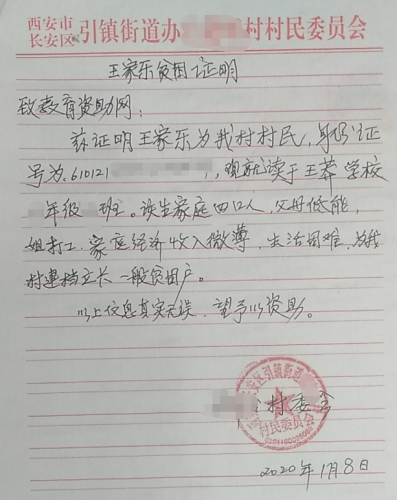 西安市
长安区 引镇街道办 村村民委员会
王家乐贫困证明
致教育资助网：
兹证明王家乐为我村村民，身份证
号为：610121 ，现就读于王莽学校
年级 班。该生家庭四口人，父母低能，
姐打工，家庭经济收入微薄，生活困难，为我
村建档立长一般贫困户。
以上信息真实无误，望予以资助。
村委会
村民委员会
2020年1月8日